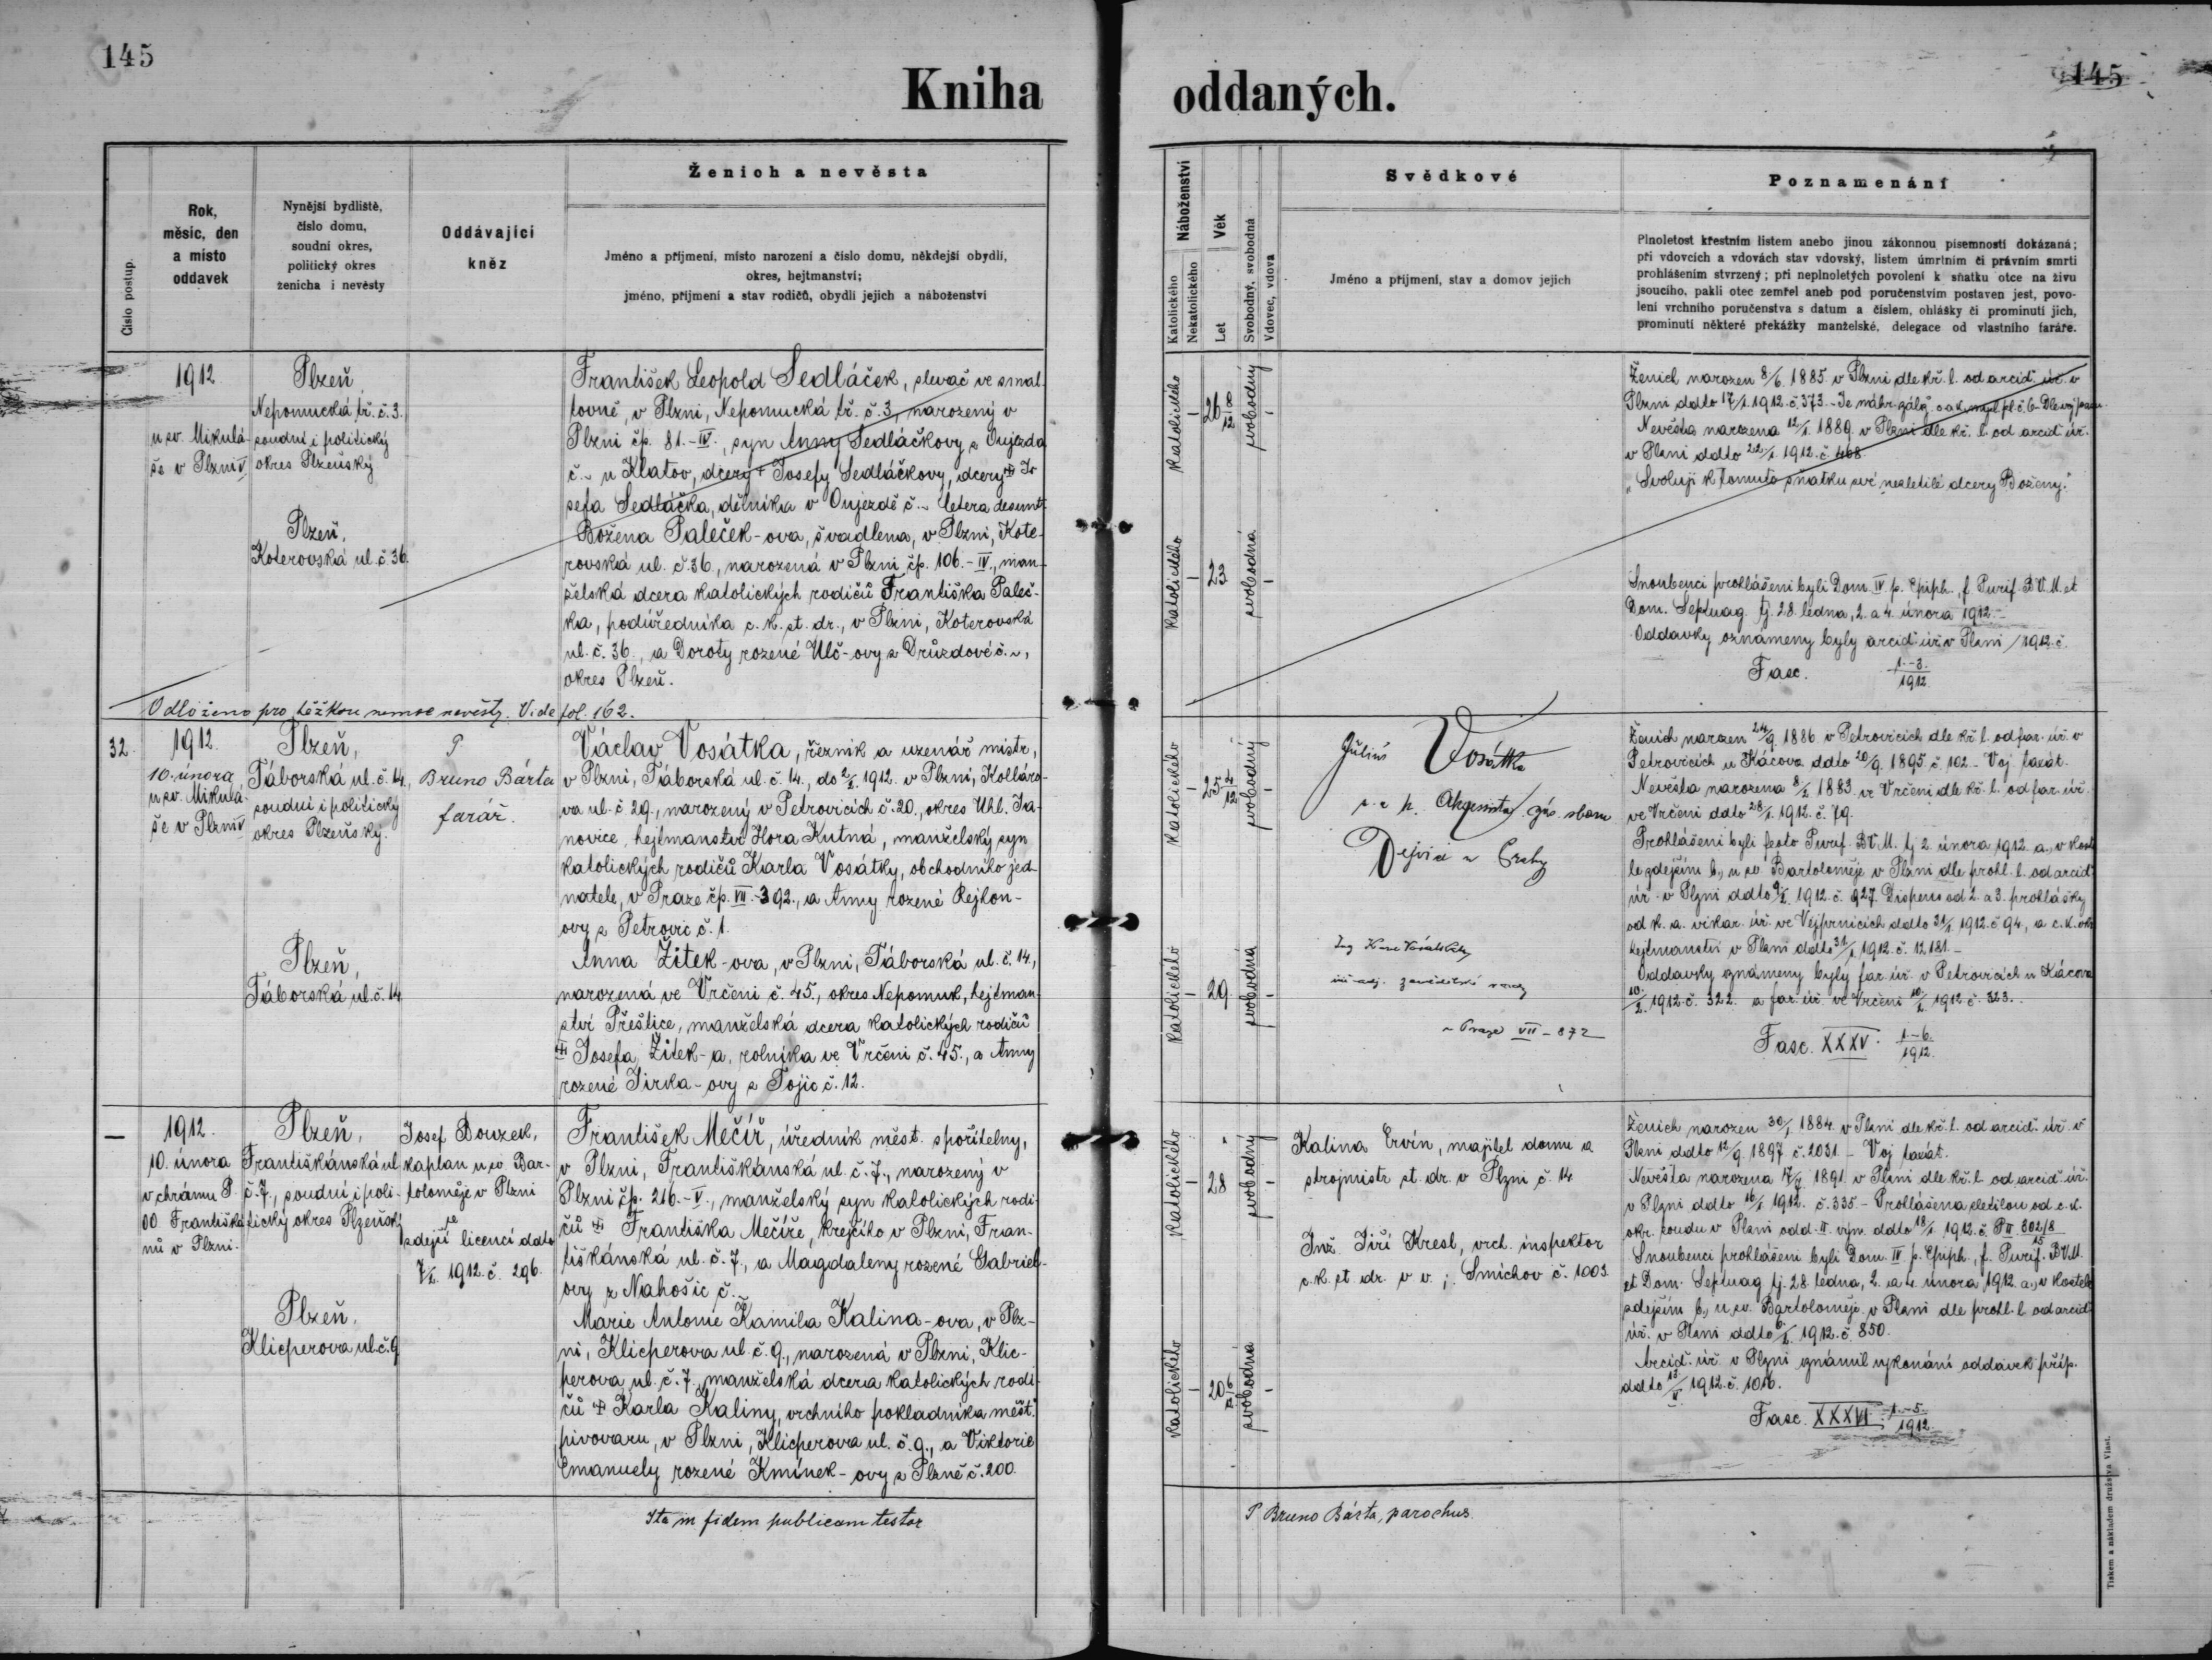 145
145
Kniha oddaných.
Číslo postup.
Rok,
měsíc, den
a místo
oddavek
Nynější bydliště,
číslo domu,
soudní okres,
politický okres
ženicha i nevěsty
Oddávající
kněz
Ženich a nevěsta
Jméno a příjmení, místo narození a číslo domu, někdejší obydlí,
okres, hejtmanství;
jméno, příjmení a stav rodičů, obydlí jejich a náboženství
Náboženství
Katolického
Nekatolického
Věk
Let
Svobodný, svobodná
Vdovec, vdova
Svědkové
Jméno a příjmení, stav a domov jejich
Poznamenání
Plnoletost křestním listem anebo jinou zákonnou písemností dokázaná;
při vdovcích a vdovách stav vdovský, listem úmrtním či právním smrti
prohlášením stvrzený; při neplnoletých povolení k sňatku otce na živu
jsoucího, pakli otec zemřel aneb pod poručenstvím postaven jest, povo-
lení vrchního poručenstva s datum a číslem, ohlášky či prominutí jich,
prominutí některé překážky manželské, delegace od vlastního faráře.
1912
u sv. Mikulá-
še v Plzni
Plzeň
Nepomucká tř. č. 3.
soudní i politický
okres Plzeňský
Plzeň,
Koterovská ul. č. 36.
František Leopold Sedláček, slevač ve smal-
tovně, v Plzni, Nepomucká tř. č. 3, narozený v
Plzni čp. 81.-IV., syn Anny Sedláčkovy z Oujezda
č. ~ u Klatov, dcery + Josefy Sedláčkovy, dcery + Jo-
sefa Sedláčka, dělníka v Oujezdě č. ~ cetera desunt.
Božena Paleček-ova, švadlena, v Plzni, Kote-
rovská ul. č. 36, narozená v Plzni čp. 106.-IV., man-
želská dcera katolických rodičů Františka Paleč-
ka, podúředníka c. k. st. dr., v Plzni, Koterovská
ul. č. 36., a Doroty rozené Ulč-ovy z Drůzdové č. ~,
okres Plzeň.
Katolického
26 8/12
svobodný
Katolického
23
svobodná
Ženich narozen 8/6 1885 v Plzni dle kř. l. od arciď. úř. v
Plzni ddto 17/1. 1912. č. 373.
Nevěsta narozena 12/1. 1889. v Plzni dle kř. l. od arciď. úř.
v Plzni ddto 22/1. 1912. č. 468.
"Svoluji k tomuto sňatku své nezletilé dcery Boženy."
Snoubenci prohlášeni byli Dom. IV. p. Epiph., f. Purif. B.V.M. et
Dom. Septuag. tj. 28. ledna, 2. a 4. února 1912.-
Oddavky oznámeny byly arciď. úř. v Plzni / 1912. č.
Fasc. 1.-3./1912
Odloženo pro těžkou nemoc nevěsty. Vide fol. 162.
32.
1912.
10. února
u sv. Mikulá-
še v Plzni
Plzeň,
Táborská ul. č. 14.,
soudní i politický
okres Plzeňský.
Plzeň,
Táborská ul. č. 14
P
Bruno Bárta
farář.
Václav Vosátka, řezník a uzenář mistr,
v Plzni, Táborská ul. č. 14., do 2/1. 1912. v Plzni, Kolláro-
va ul. č. 29., narozený v Petrovicích č. 20., okres Uhl. Ja-
novice, hejtmanství Hora Kutná, manželský syn
katolických rodičů Karla Vosátky, obchodního jed-
natele, v Praze čp. VII.-392., a Anny rozené Rejhon-
ovy z Petrovic č. 1.
Anna Žitek-ova, v Plzni, Táborská ul. č. 14,
narozená ve Vrčeni č. 45., okres Nepomuk, hejtman-
ství Přeštice, manželská dcera katolických rodičů
+ Josefa Žitek-a, rolníka ve Vrčeni č. 45., a Anny
rozené Jirka-ovy z Tojic č. 12.
Katolického
25 4/12
svobodný
Katolického
29.
svobodná
Julius Vosátka
Dejvice u Prahy
v Praze VII-872
Ženich narozen 24/9. 1886. v Petrovicích dle kř. l. od far. úř. v
Petrovicích u Kácova ddto 20/9. 1895. č. 102.- Voj. taxát.
Nevěsta narozena 8/1. 1883. ve Vrčeni dle kř. l. od far. úř.
ve Vrčeni ddto 28/1. 1912. č. 79.
Prohlášeni byli festo Purif. B.V.M. tj. 2. února 1912. a., v koste-
le zdejším b., u sv. Bartoloměje v Plzni dle prohl. l. od arciď.
úř. v Plzni ddto 9/2. 1912. č. 927. Dispens od 2. a 3. prohlášky
od k. a. vikar. úř. ve Vejprnicích ddto 31/1. 1912. č. 94., a c. k. okr.
hejtmanství v Plzni ddto 31/1. 1912. č. 12.181.-
Oddavky oznámeny byly far. úř. v Petrovicích u Kácova
10/2. 1912. č. 322. a far. úř. ve Vrčeni 10/2. 1912 č. 323..
Fasc. XXXV. 1.-6./1912.
—
1912.
10. února
v chrámu P.
OO. Františká-
nů v Plzni.
Plzeň,
Františkánská ul.
č. 7., soudní i poli-
tický okres Plzeňský
Plzeň,
Klicperova ul. č. 9
Josef Douzek,
kaplan u sv. Bar-
toloměje v Plzni
se
zdejší licencí ddto
7/2. 1912. č. 296.
František Mečíř, úředník měst. spořitelny,
v Plzni, Františkánská ul. č. 7., narozený v
Plzni čp. 216.-V., manželský syn katolických rodi-
čů + Františka Mečíře, krejčího v Plzni, Fran-
tiškánská ul. č. 7., a Magdaleny rozené Gabriel-
ovy z Nahošic č. ~
Marie Antonie Kamila Kalina-ova, v Plz-
ni, Klicperova ul. č. 9., narozená v Plzni, Klic-
perova ul. č. 7., manželská dcera katolických rodi-
čů + Karla Kaliny, vrchního pokladníka měšť.
pivovaru, v Plzni, Klicperova ul. č. 9., a Viktorie
Emanuely rozené Kmínek-ovy z Plzně č. 200.
Katolického
28
svobodný
Katolického
20 6/12
svobodna
Kalina Ervín, majitel domu a
strojmistr st. dr. v Plzni č. 14
Inž. Jiří Kresl, vrch. inspektor
c. k. st. dr. v v.; Smíchov č. 1003.
Ženich narozen 30/1. 1884. v Plzni dle kř. l. od arciď. úř. v
Plzni ddto 12/9. 1897. č. 2031.- Voj. taxát.
Nevěsta narozena 17/7. 1891. v Plzni dle kř. l. od arciď. úř.
v Plzni ddto 16/1. 1912. č. 335.- Prohlášena zletilou od c. k.
okr. soudu v Plzni odd. II. výn. ddto 18/1. 1912. č. P II 802/8
Snoubenci prohlášeni byli Dom. IV. p. Epiph., f. Purif. B.V.M.
et Dom. Septuag. tj. 28. ledna, 2. a 4. února 1912. a., v kostele
zdejším b., u sv. Bartoloměje v Plzni dle prohl. l. od arciď.
úř. v Plzni ddto 6/2. 1912. č. 850.
Arciď. úř. v Plzni oznámil vykonání oddavek příp.
ddto 13/2. 1912. č. 1016.
Fasc. XXXVI. 1.-5./1912.
Ita in fidem publicam testor
P. Bruno Bárta, parochus.
Tiskem a nákladem družstva Vlast.